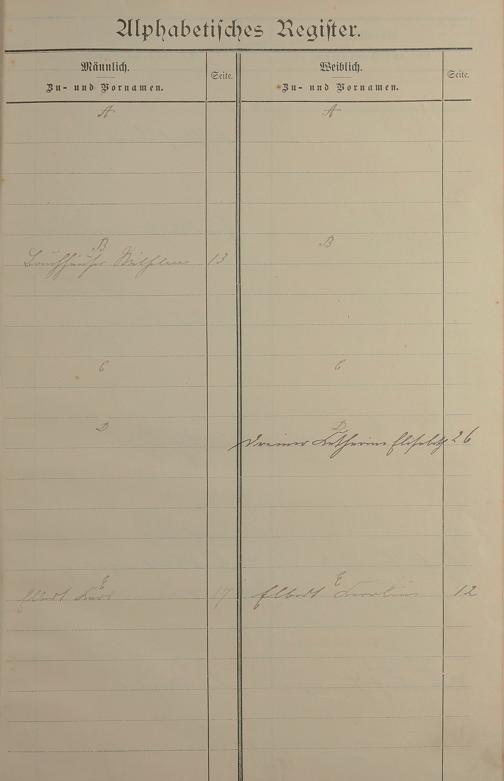 Alphabetisches Register.
Männlich. Zu- und Vornamen. Seite.
Weiblich. Zu- und Vornamen. Seite.
A A
B B
Wilhelm 13
C C
D D
Katharine Elisabeth 26
E E
Elbert Karl 17 Elbert Karoline 12